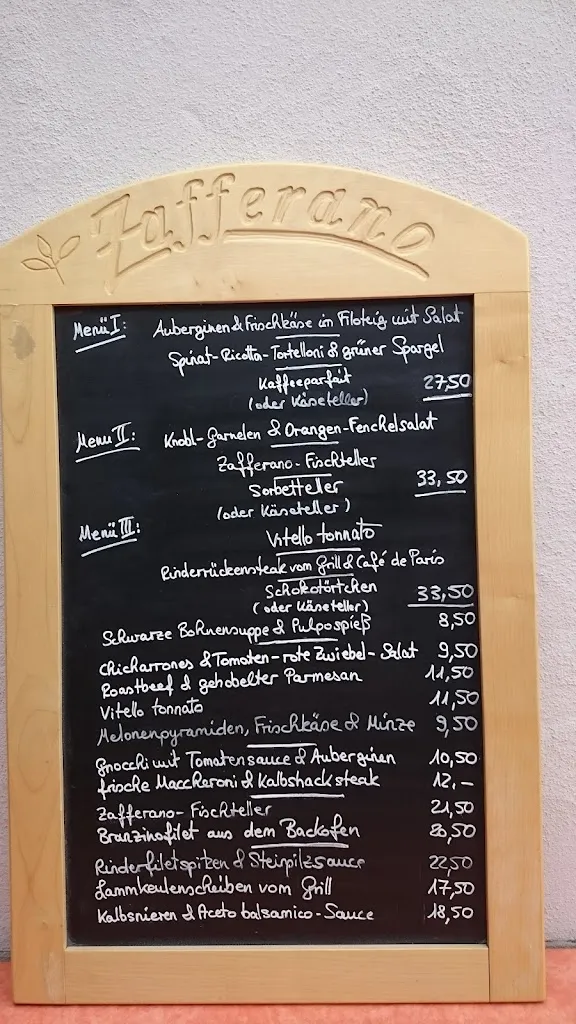 Zafferano
Menü I: Auberginen & Frischkäse im Filoteig mit Salat
Spinat-Ricotta-Tortelloni & grüner Spargel
Kaffeeparfait
(oder Käseteller) 27,50
Menü II: Knobl-Garnelen & Orangen-Fenchelsalat
Zafferano-Fischteller
Sorbetteller 33,50
(oder Käseteller)
Menü III: Vitello tonnato
Rinderrückensteak vom Grill & Café de Paris
Schokotörtchen
(oder Käseteller) 33,50
Schwarze Bohnensuppe & Pulpospieß 8,50
Chicharrones & Tomaten-rote Zwiebel-Salat 9,50
Roastbeef & gehobelter Parmesan 11,50
Vitello tonnato 11,50
Melonenpyramiden, Frischkäse & Minze 9,50
Gnocchi mit Tomatensauce & Auberginen 10,50
frische Maccheroni & Kalbshacksteak 12,–
Zafferano-Fischteller 21,50
Branzinofilet aus dem Backofen
Rinderfiletspitzen & Steinpilzsauce 22,50
Lammkeulenscheiben vom Grill 17,50
Kalbsnieren & Aceto balsamico-Sauce 18,50